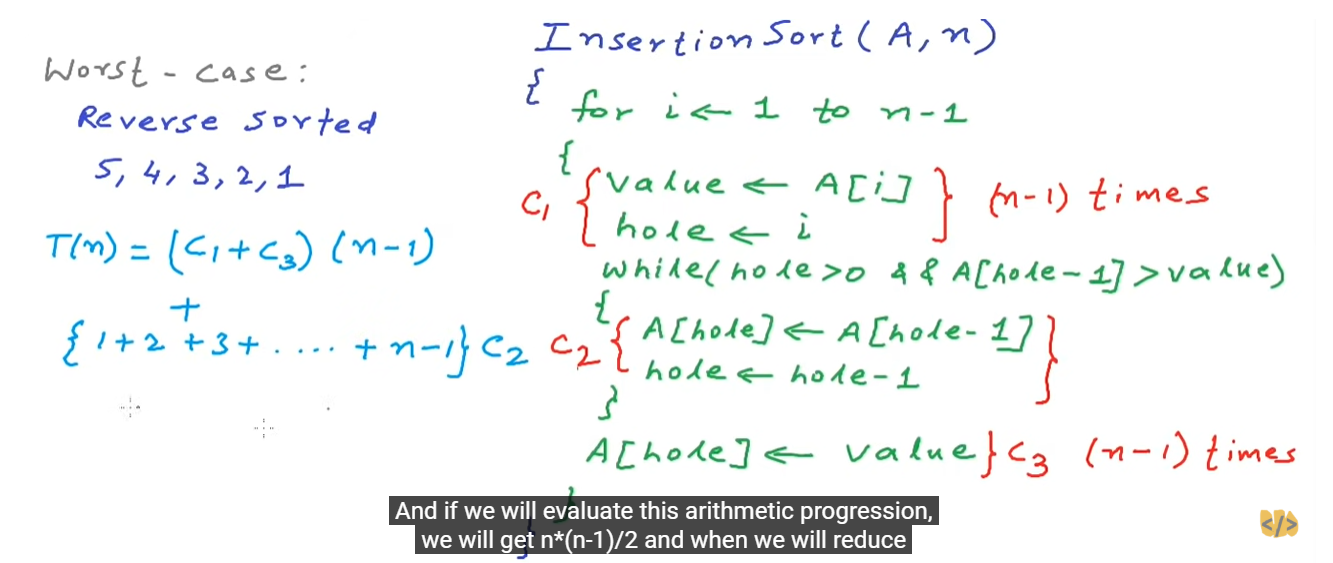 Worst-case:
Reverse sorted
5, 4, 3, 2, 1
T(n) = (C1+C3) (n-1)
+
{ 1+2 +3+ . ... + n-1} C2
InsertionSort(A, n)
{
for i ← 1 to n-1
{
C1 { value ← A[i] } (n-1) times
hole ← i
while(hole>0 && A[hole-1]>value)
{
C2 { A[hole] ← A[hole-1] }
hole ← hole-1
}
A[hole] ← value } C3 (n-1) times
}
}
And if we will evaluate this arithmetic progression,
we will get n*(n-1)/2 and when we will reduce
</>